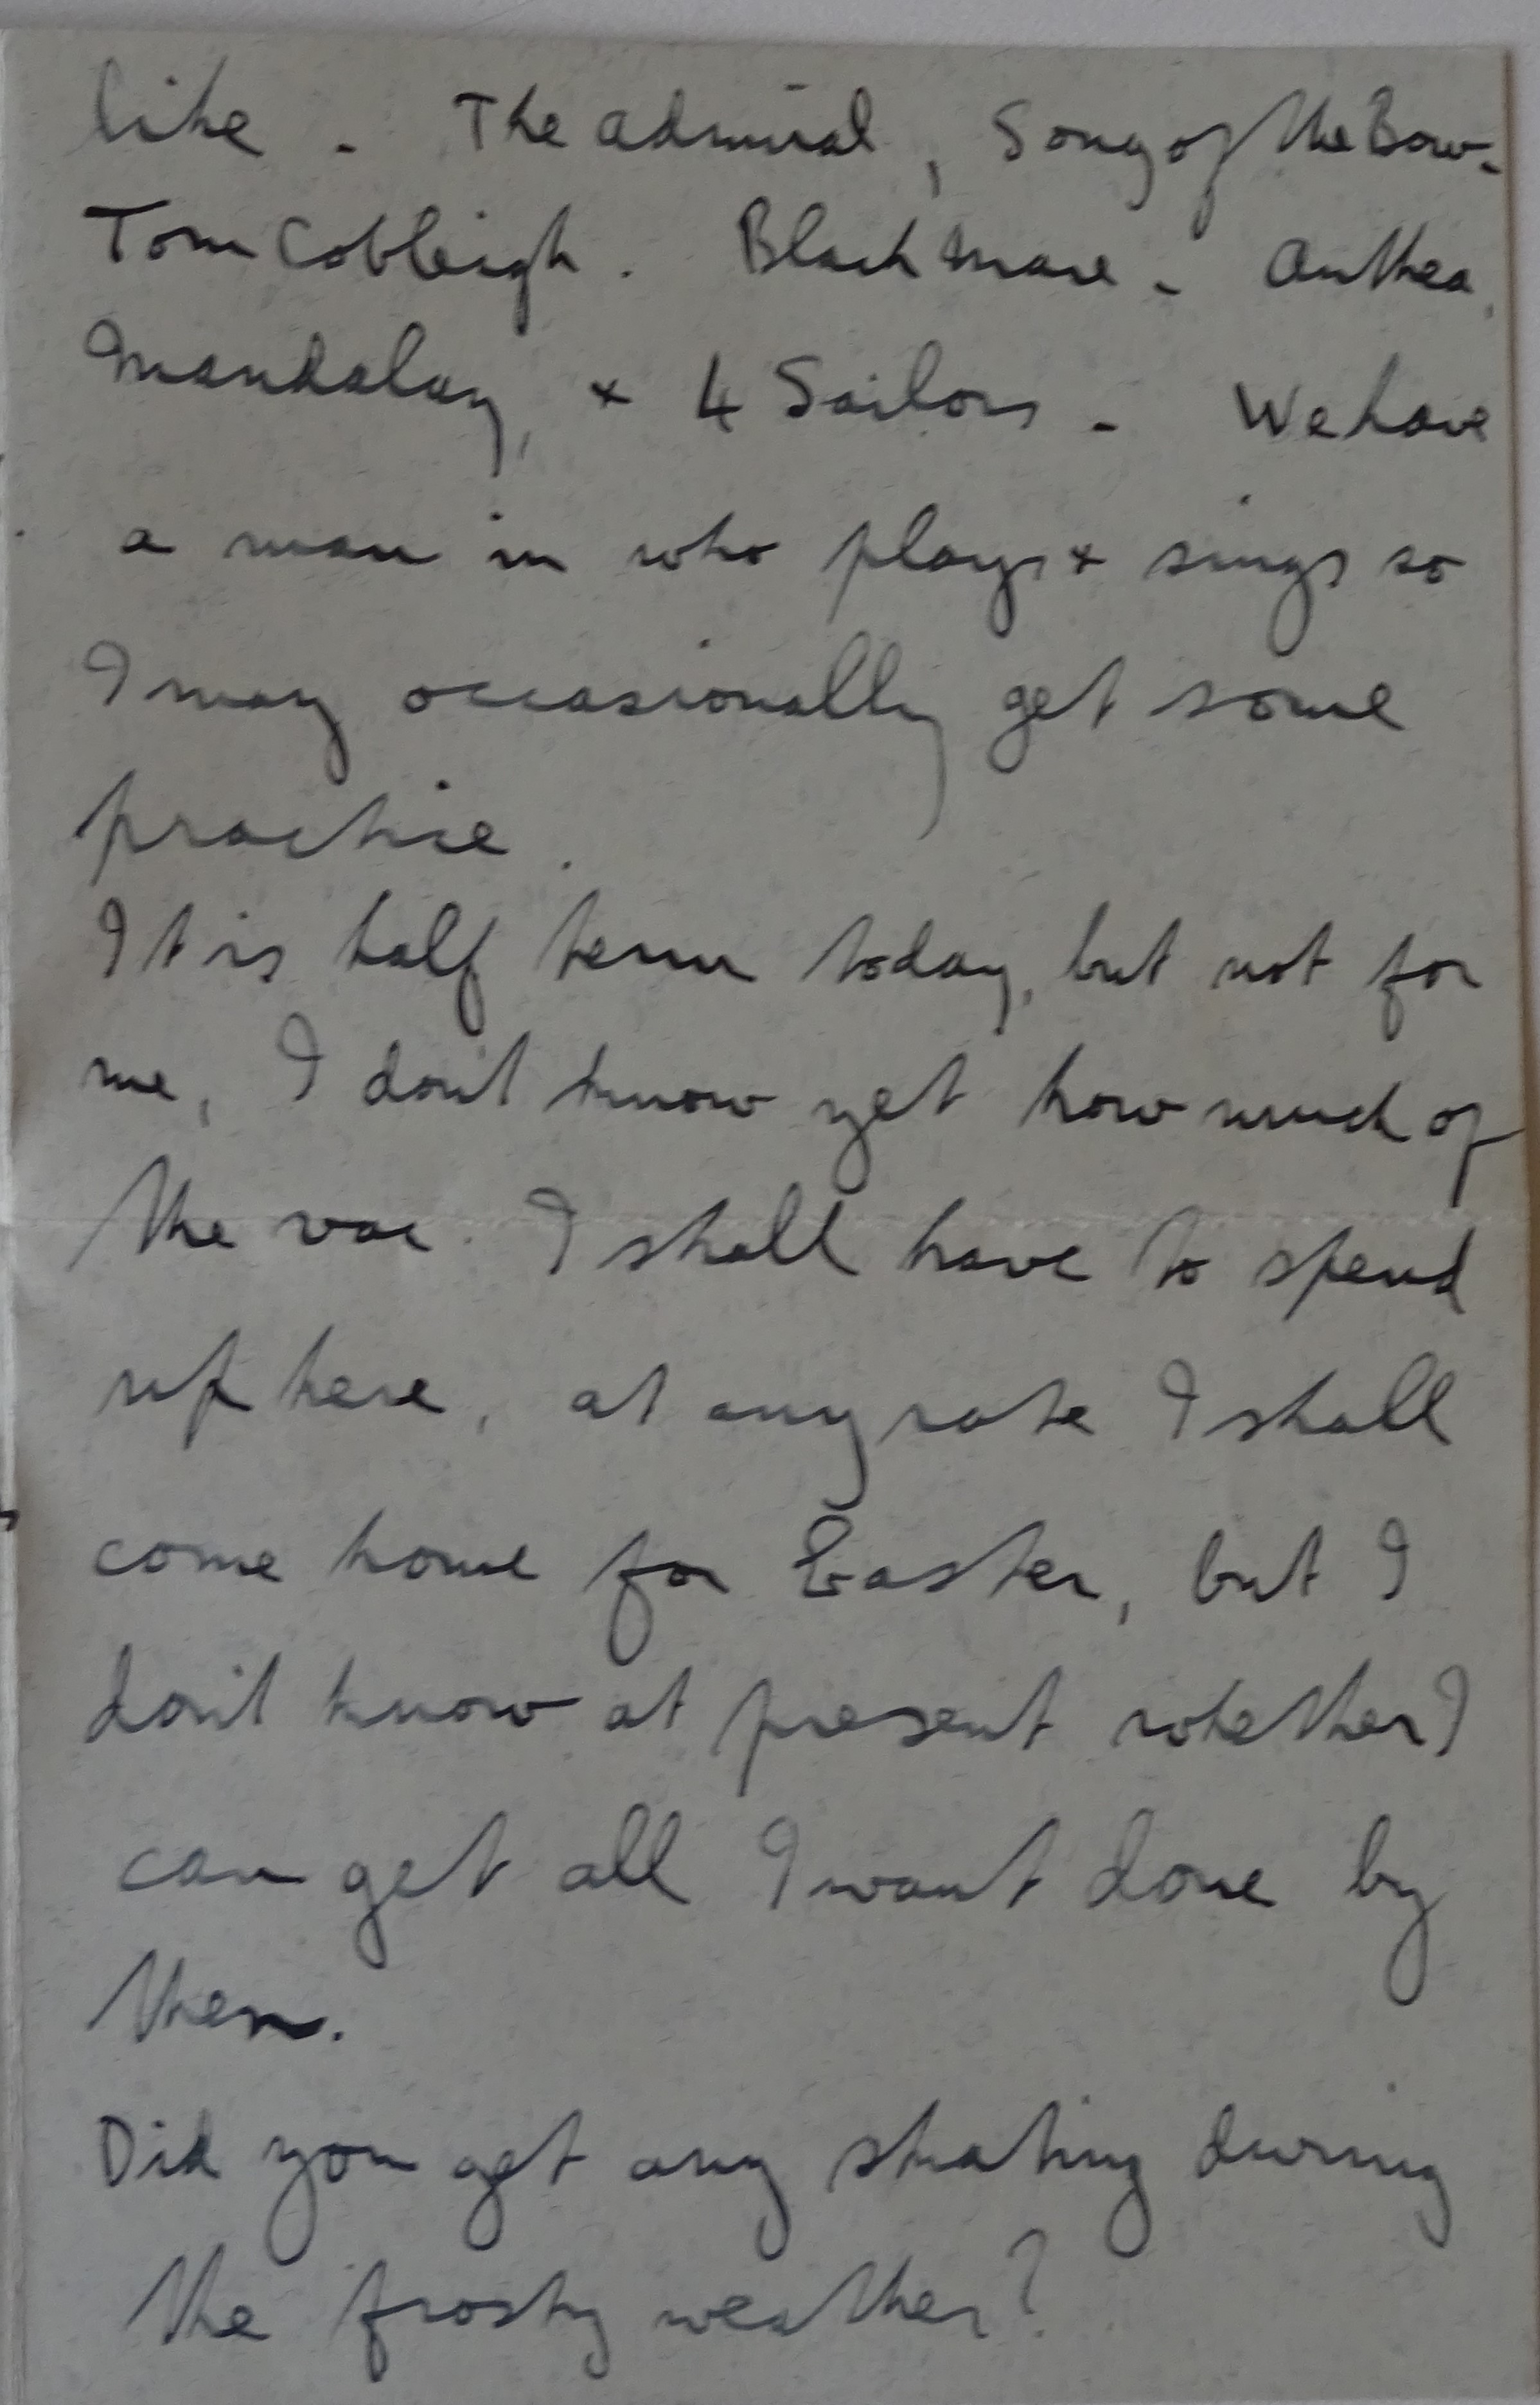 like - The Admiral, Song of the Bow -
Tom Cobleigh. Black Mare - Anthea,
Mandalay, + 4 Sailors - We have
a man in who plays + sings so
I may occasionally get some
practice.
It is half term today, but not for
me, I don't know yet how much of
the vac. I shall have to spend
up here, at any rate I shall
come home for Easter, but I
don't know at present whether I
can get all I want done by
then.
Did you get any skating during
the frosty weather?